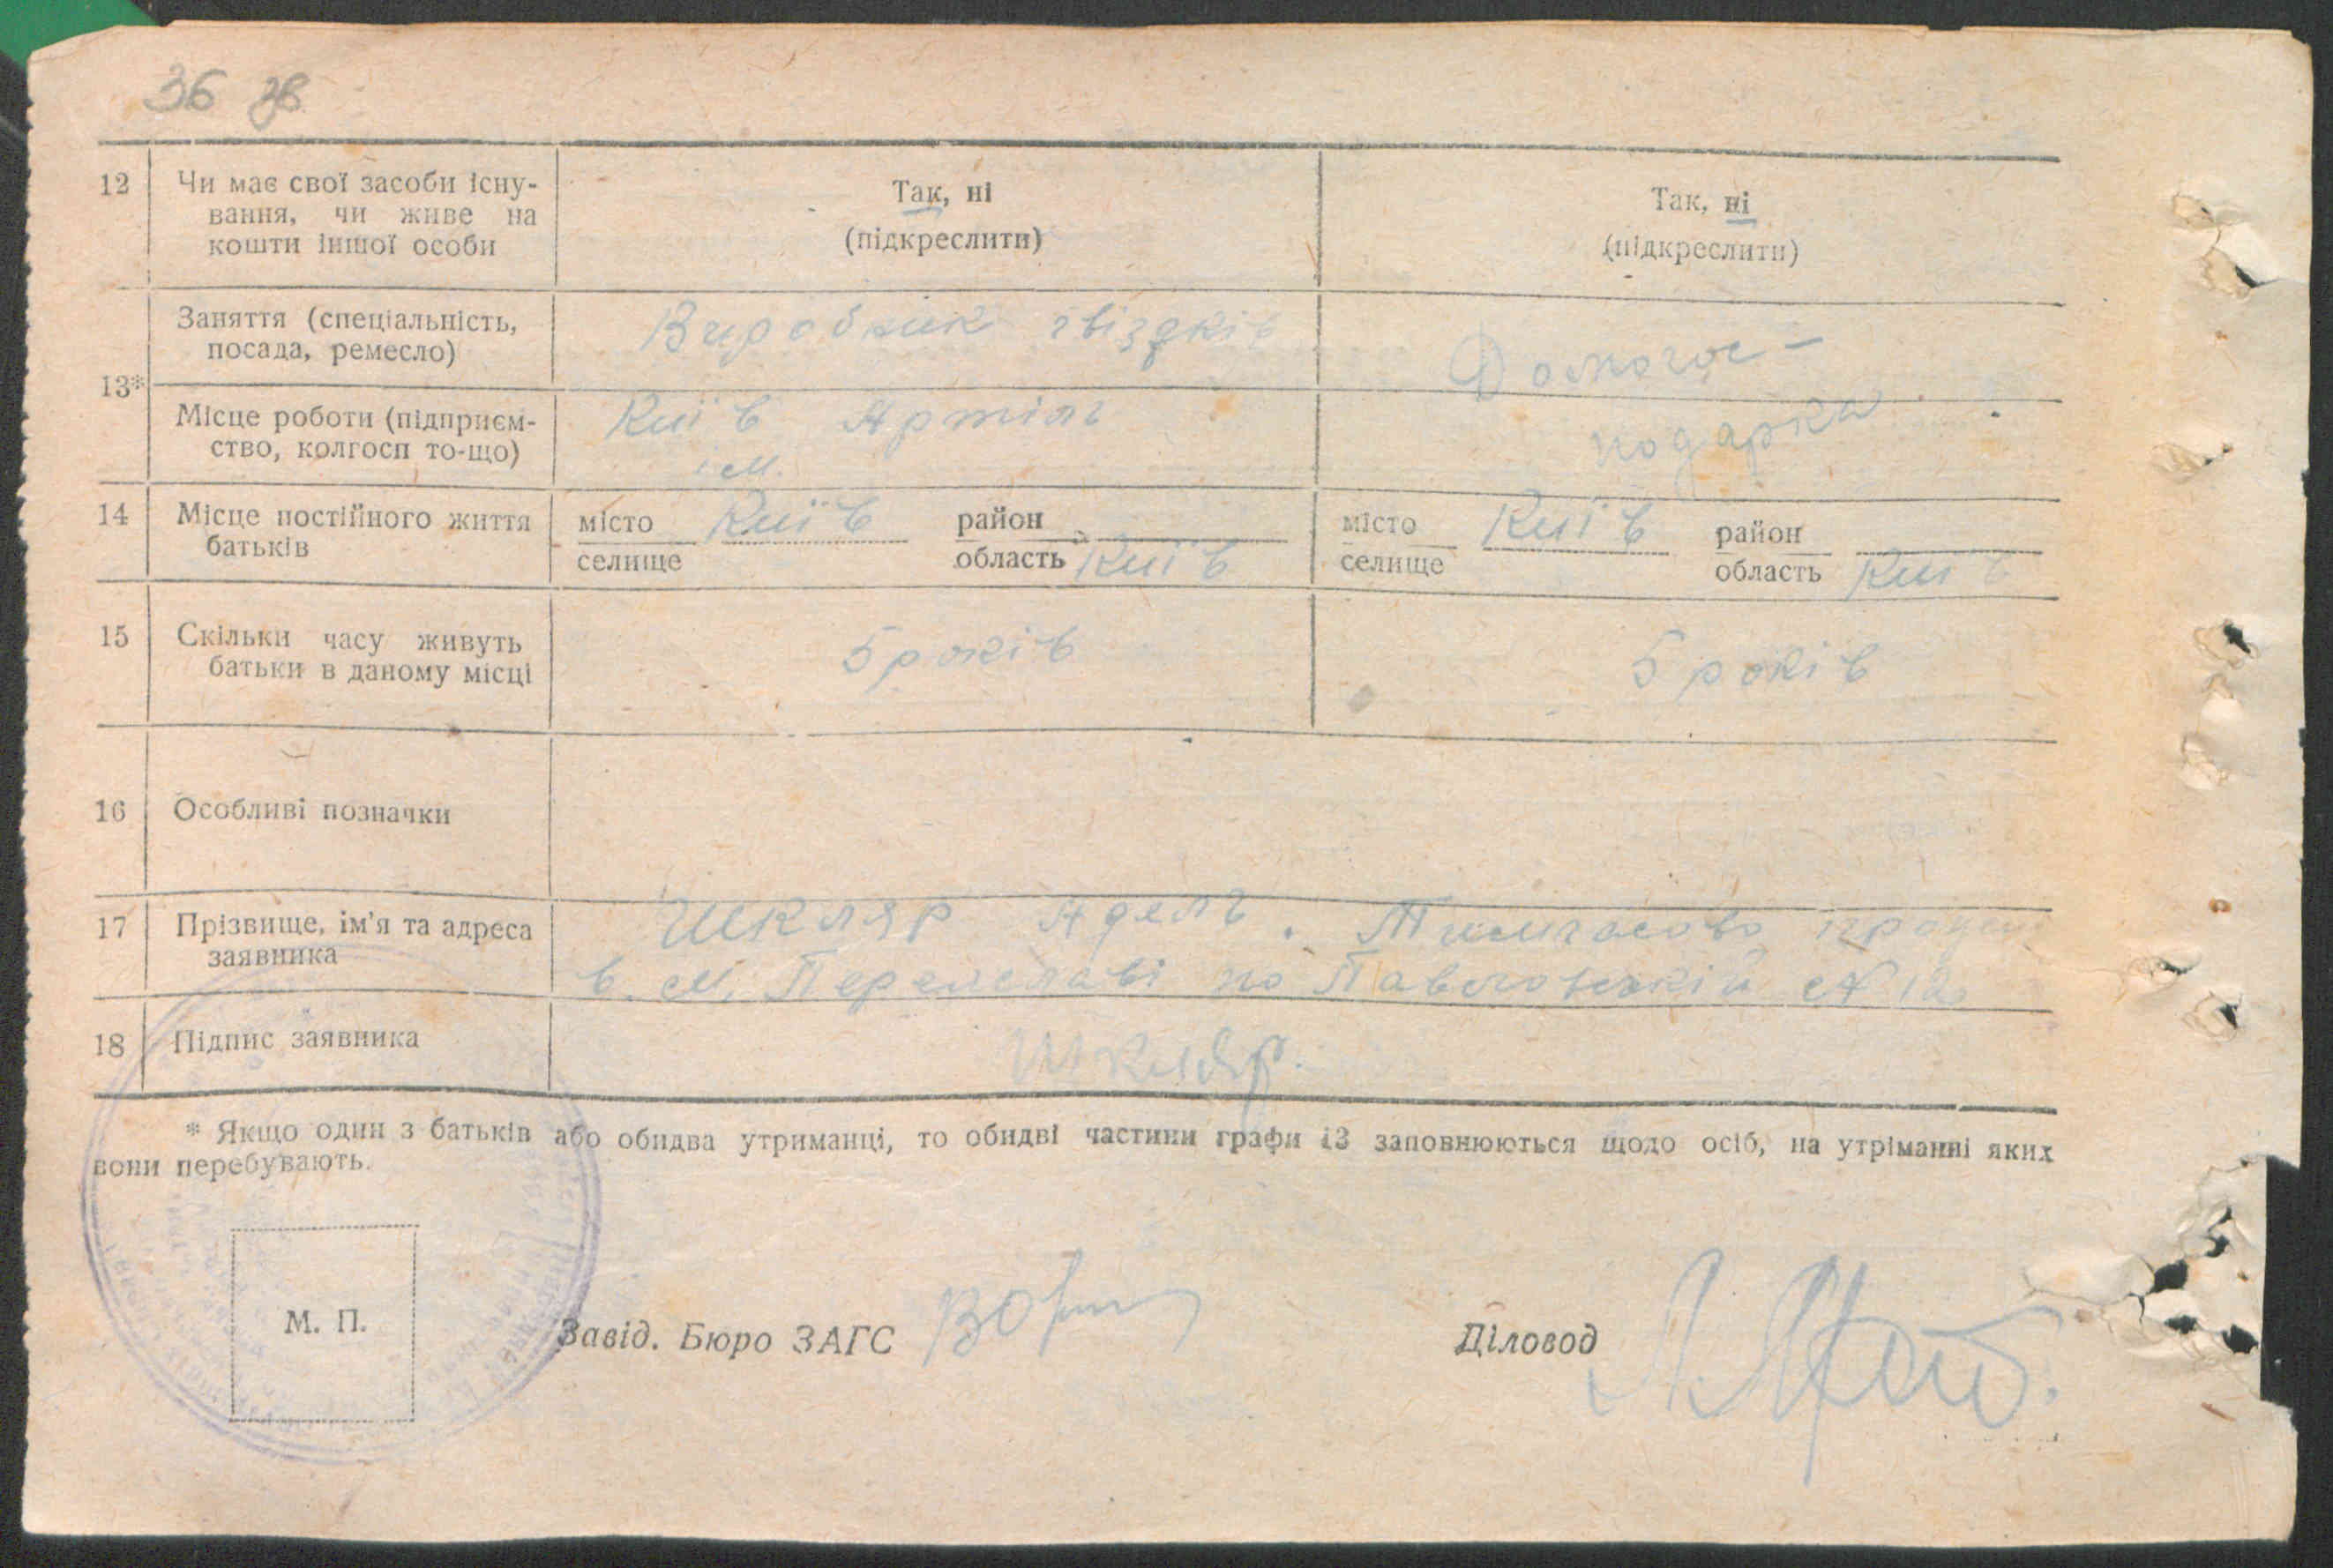 36 зв
12 Чи має свої засоби існу-
вання, чи живе на
кошти іншої особи
Так, ні
(підкреслити)
Так, ні
(підкреслити)
13*
Заняття (спеціальність,
посада, ремесло)
Виробник гвіздків
Домогос-
подарка
Місце роботи (підприєм-
ство, колгосп то-що)
Київ Артіль
ім.
14 Місце постійного життя
батьків
місто Київ район
селище область Київ
місто Київ район
селище область Київ
15 Скільки часу живуть
батьки в даному місці
5 років
5 років
16 Особливі позначки
17 Прізвище, ім'я та адреса
заявника
Шкляр Адель. Тимчасово
в м. Переяславі по №12
18 Підпис заявника
Шкляр.
* Якщо один з батьків або обидва утриманці, то обидві частини графи 13 заповнюються щодо осіб, на утріманні яких
вони перебувають.
М. П.
Завід. Бюро ЗАГС
Діловод